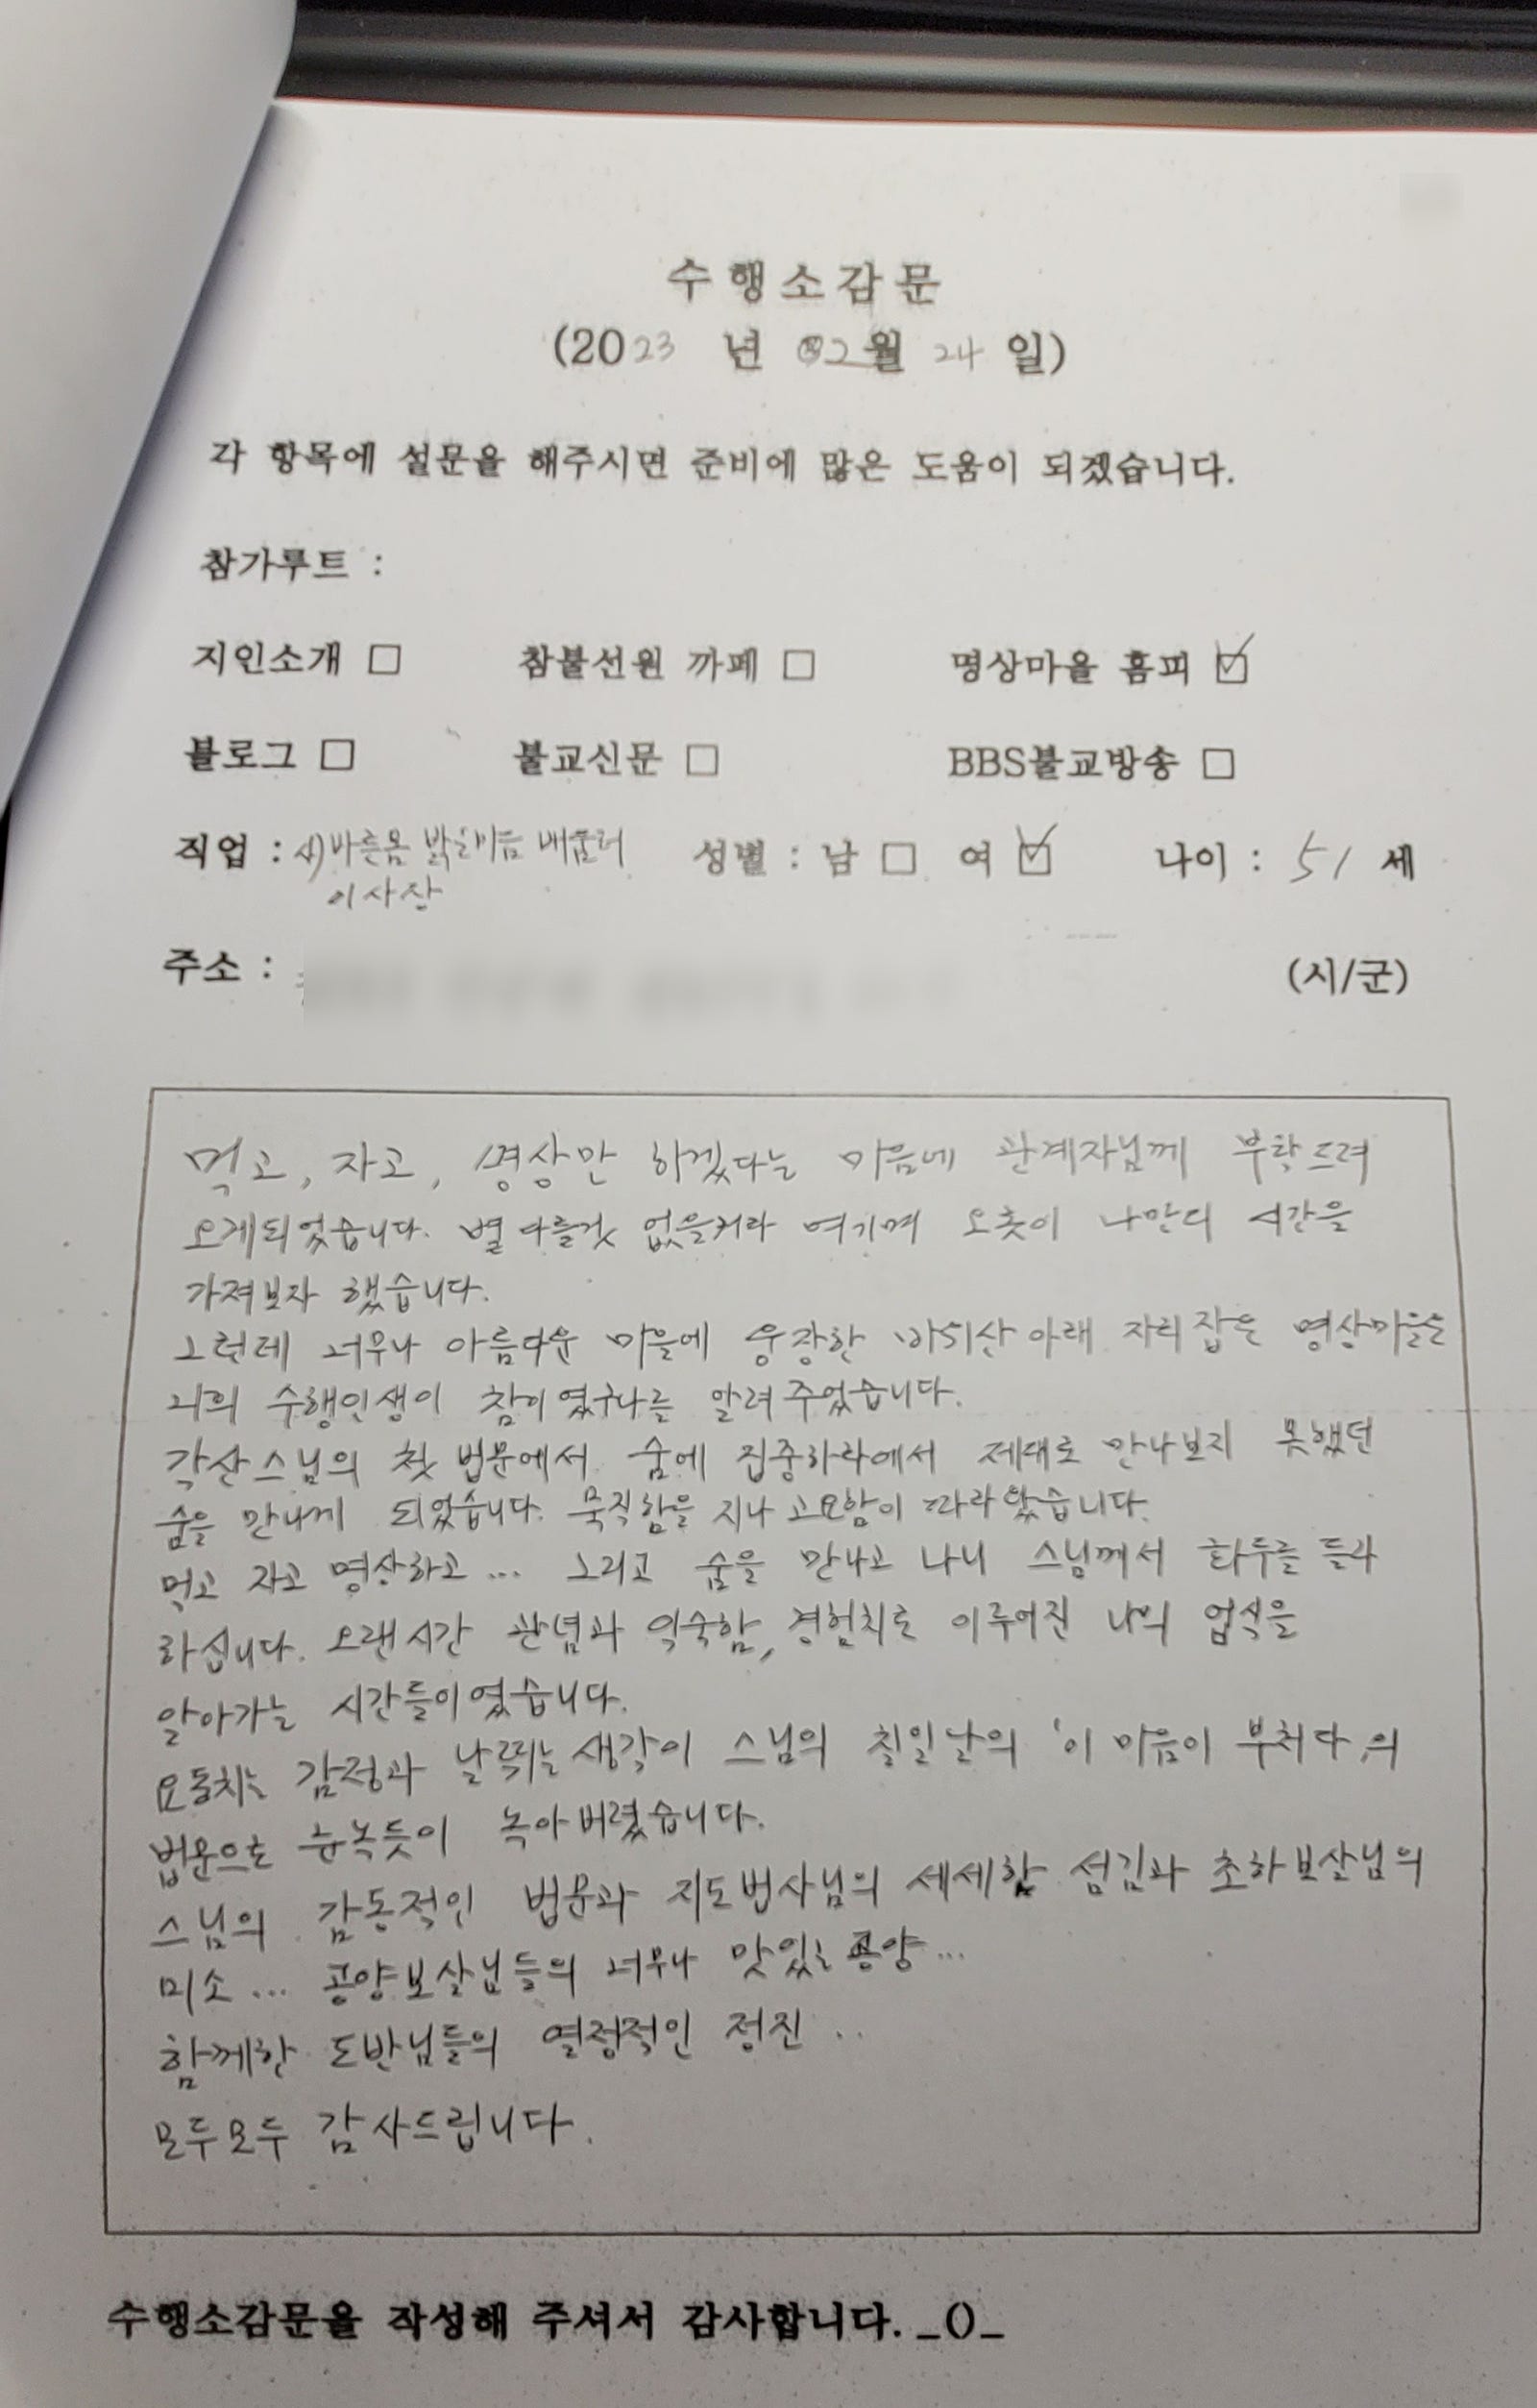 수행소감문
(2023 년 02월 24 일)
각 항목에 설문을 해주시면 준비에 많은 도움이 되겠습니다.
참가루트 :
지인소개 □ 참불선원 까페 □ 명상마을 홈피 ☑
블로그 □ 불교신문 □ BBS불교방송 □
직업 : 사)바른몸 밝은마음 배움터 성별 : 남 □ 여 ☑ 나이 : 51 세
이사장
주소 : (시/군)
먹고, 자고, 명상만 하겠다는 마음에 관계자님께 부탁드려
오게되었습니다. 별 다를것 없을거라 여기며 오롯이 나만의 시간을
가져보자 했습니다.
그런데 너무나 아름다운 마을에 웅장한 아래 자리잡은 명상마을은
저의 수행인생이 참이였구나를 알려주었습니다.
각산스님의 첫 법문에서 숨에 집중하라에서 제대로 만나보지 못했던
숨을 만나게 되었습니다. 묵직함을 지나 고요함이 따라왔습니다.
먹고 자고 명상하고... 그리고 숨을 만나고 나니 스님께서 화두를 들라
하십니다. 오랜시간 관념과 익숙함, 경험치로 이루어진 나의 업식을
알아가는 시간들이였습니다.
요동치는 감정과 날뛰는 생각이 스님의 칠일날의 '이 마음이 부처다'의
법문으로 눈녹듯이 녹아버렸습니다.
스님의 감동적인 법문과 지도법사님의 세세한 섬김과 초하보살님의
미소... 공양보살님들의 너무나 맛있는 공양...
함께한 도반님들의 열정적인 정진..
모두모두 감사드립니다.
수행소감문을 작성해 주셔서 감사합니다._()_